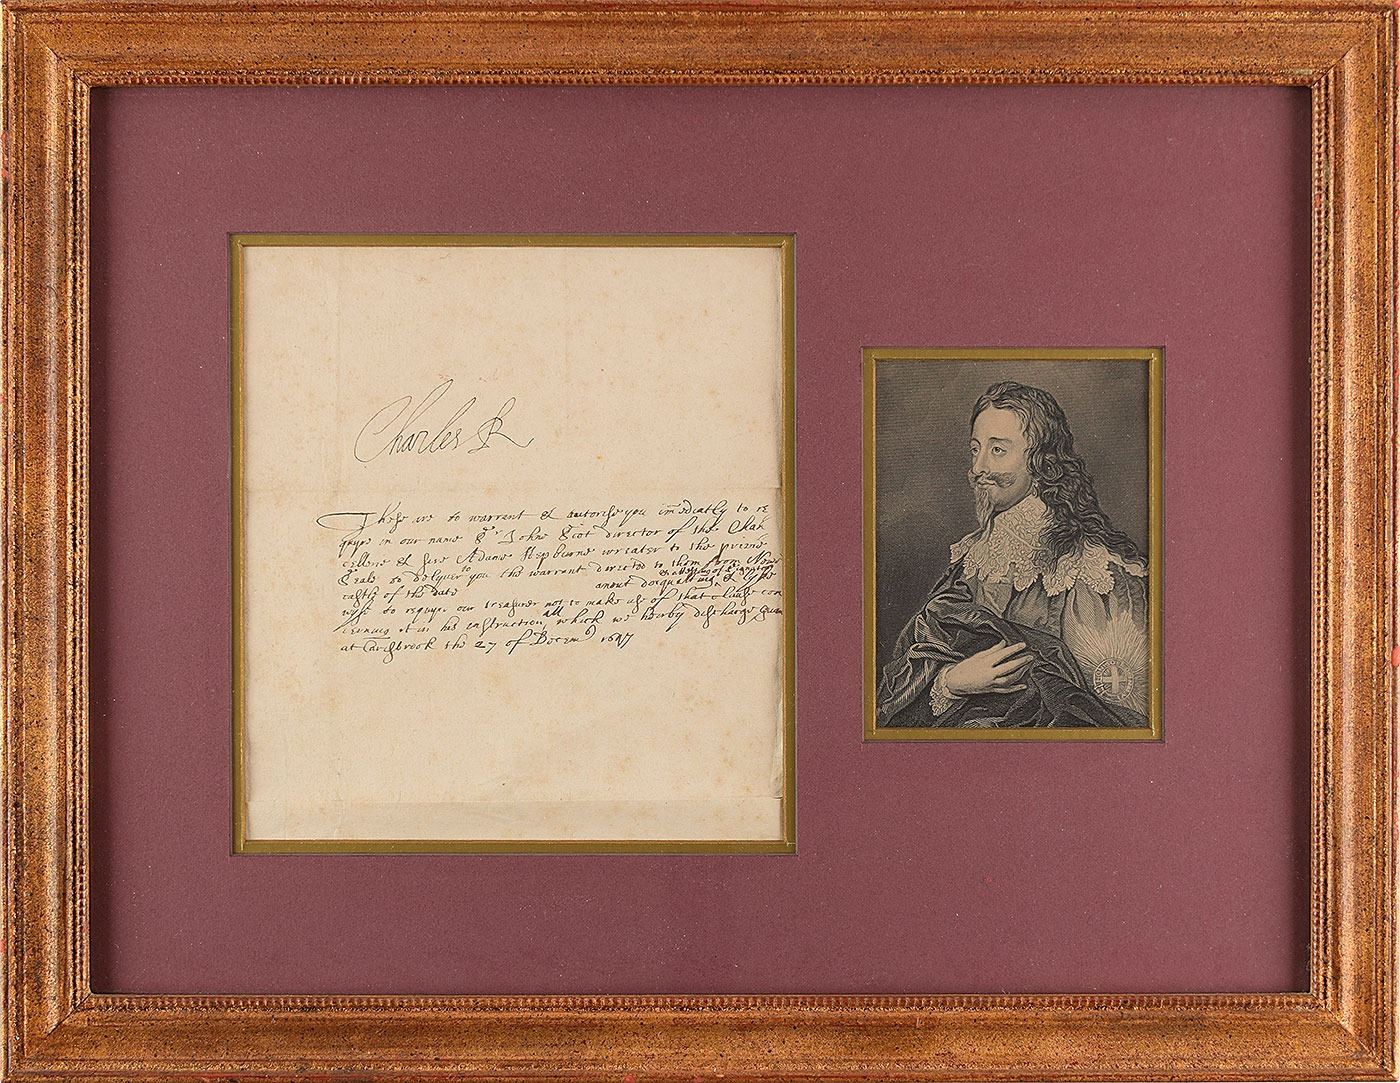 Charles R
These are to warrant & autorise you imediatly to re
quyre in our name Sr Johne Scot director of the Chan
cellerie & Sire Adame Hepburne wreater to the privie
Seale to delyver to you the warrant directed to them from New
castly of the date anent &
wyse to requyre our treasurer not to make use of that clause con
cerning it in his instruction, all which we hereby discharge Given
at Carisbrook the 27 of Decem 1647